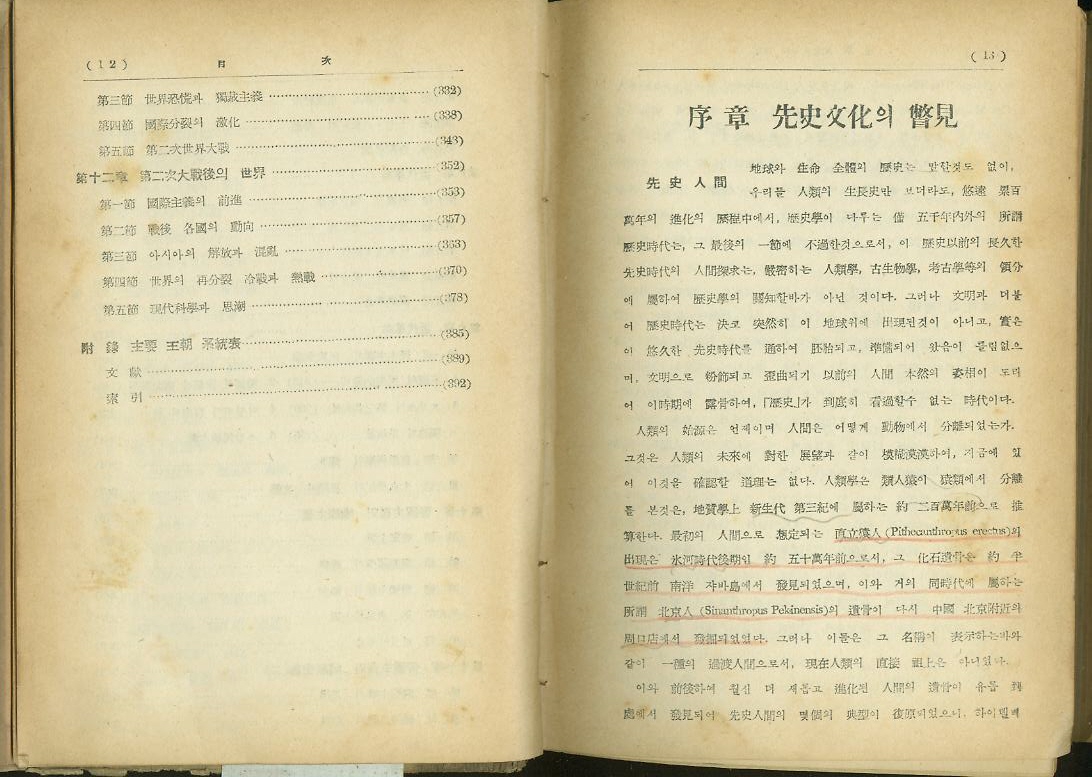 (12) 目 次
第三節 世界恐慌과 獨裁主義 ……………………(332)
第四節 國際分裂의 激化 ……………………(338)
第五節 第二次世界大戰 ……………………(343)
第十二章 第二次大戰後의 世界 ……………………(352)
第一節 國際主義의 前進 ……………………(353)
第二節 戰後 各國의 動向 ……………………(357)
第三節 아시아의 解放과 混亂 ……………………(363)
第四節 世界의 再分裂 冷戰과 熱戰 ……………………(370)
第五節 現代科學과 思潮 ……………………(378)
附 錄 主要 王朝 系統表 ……………………(385)
文 獻 ……………………(389)
索 引 ……………………(392)
(13)
序章 先史文化의 瞥見
先史人間
地球와 生命 全體의 歷史는 말한것도 없이,
우리들 人類의 生長史만 보더라도, 悠遠 累百
萬年의 進化의 歷程中에서, 歷史學이 다루는 僅 五千年內外의 所謂
歷史時代는, 그 最後의 一節에 不過한것으로서, 이 歷史以前의 長久한
先史時代의 人間探求는, 嚴密히는 人類學, 古生物學, 考古學等의 領分
에 屬하여 歷史學의 關知한바가 아닌 것이다. 그러나 文明과 더불
어 歷史時代는 決코 突然히 이 地球위에 出現된것이 아니고, 實은
이 悠久한 先史時代를 通하여 胚胎되고, 準備되어 왔음이 틀림없으
며, 文明으로 粉飾되고 歪曲되기 以前의 人間 本然의 姿相이 도리
어 이時期에 露骨하여, 「歷史」가 到底히 看過할수 없는 時代이다.
人類의 始源은 언제이며 人間은 어떻게 動物에서 分離되었는가.
그것은 人類의 未來에 對한 展望과 같이 模糊漠漠하여, 지금에 있
어 이것을 確認한 道理는 없다. 人類學은 類人猿이 猿類에서 分離
를 본것은, 地質學上 新生代 第三紀에 屬하는 約 二百萬年前으로 推
算한다. 最初의 人間으로 想定되는 直立猿人 (Pithecanthropus erectus)의
出現은 氷河時代後期인 約 五十萬年前으로서, 그 化石遺骨은 約 半
世紀前 南洋 쟈바島에서 發見되었으며, 이와 거의 同時代에 屬하는
所謂 北京人 (Sinanthropus Pekinensis)의 遺骨이 다시 中國 北京附近의
周口店에서 發掘되었었다. 그러나 이들은 그 名稱이 表示하는바와
같이 一種의 過渡人間으로서, 現在人類의 直接 祖上은 아니었다.
이와 前後하여 훨신 더 새롭고 進化된 人間의 遺骨이 유롭 到
處에서 發見되어 先史人間의 몇個의 典型이 復原되었으니, 하이델베